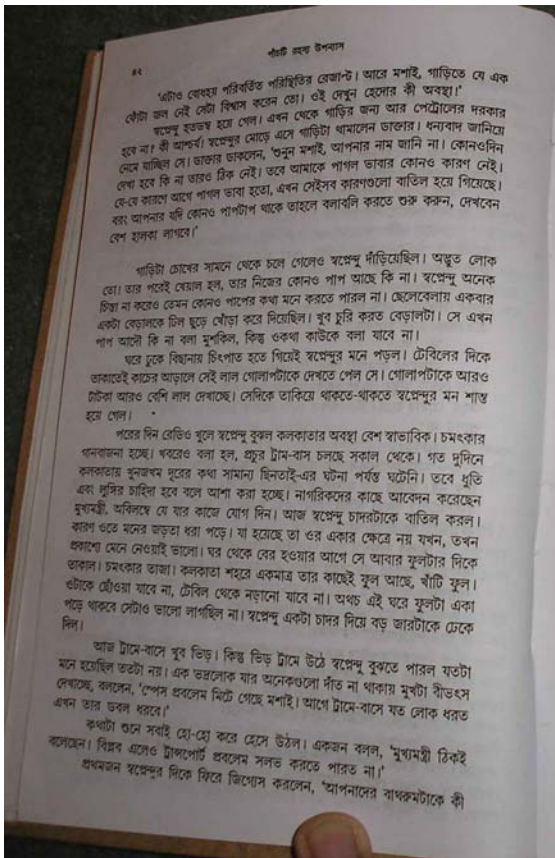 পাঁচটি রহস্য উপন্যাস
৪২
'এটাও বোধহয় পরিবর্তিত পরিস্থিতির রেজাল্ট। আরে মশাই, গাড়িতে যে এক
ফোঁটা জল নেই সেটা বিশ্বাস করেন তো। ওই দেখুন হেদোর কী অবস্থা!'
স্বপ্নেন্দু হতভম্ব হয়ে গেল। এখন থেকে গাড়ির জন্য আর পেট্রোলের দরকার
হবে না? কী আশ্চর্য! স্বপ্নেন্দুর মোড়ে এসে গাড়িটা থামালেন ডাক্তার। ধন্যবাদ জানিয়ে
নেমে যাচ্ছিল সে। ডাক্তার ডাকলেন, 'শুনুন মশাই, আপনার নাম জানি না। কোনওদিন
দেখা হবে কি না তারও ঠিক নেই। তবে আমাকে পাগল ভাবার কোনও কারণ নেই।
যে-যে কারণে আগে পাগল ভাবা হতো, এখন সেইসব কারণগুলো বাতিল হয়ে গিয়েছে।
বরং আপনার যদি কোনও পাপটাপ থাকে তাহলে বলাবলি করতে শুরু করুন, দেখবেন
বেশ হালকা লাগবে।'
গাড়িটা চোখের সামনে থেকে চলে গেলেও স্বপ্নেন্দু দাঁড়িয়েছিল। অদ্ভুত লোক
তো। তার পরেই খেয়াল হল, তার নিজের কোনও পাপ আছে কি না। স্বপ্নেন্দু অনেক
চিন্তা না করেও তেমন কোনও পাপের কথা মনে করতে পারল না। ছেলেবেলায় একবার
একটা বেড়ালকে ঢিল ছুড়ে খোঁড়া করে দিয়েছিল। খুব চুরি করত বেড়ালটা। সে এখন
পাপ আদৌ কি না বলা মুশকিল, কিন্তু ওকথা কাউকে বলা যাবে না।
ঘরে ঢুকে বিছানায় চিৎপাত হতে গিয়েই স্বপ্নেন্দুর মনে পড়ল। টেবিলের দিকে
তাকাতেই কাচের আড়ালে সেই লাল গোলাপটাকে দেখতে পেল সে। গোলাপটাকে আরও
টাটকা আরও বেশি লাল দেখাচ্ছে। সেদিকে তাকিয়ে থাকতে-থাকতে স্বপ্নেন্দুর মন শান্ত
হয়ে গেল।
পরের দিন রেডিও খুলে স্বপ্নেন্দু বুঝল কলকাতার অবস্থা বেশ স্বাভাবিক। চমৎকার
গানবাজনা হচ্ছে। খবরেও বলা হল, প্রচুর ট্রাম-বাস চলছে সকাল থেকে। গত দুদিনে
কলকাতায় খুনজখম দূরের কথা সামান্য ছিনতাই-এর ঘটনা পর্যন্ত ঘটেনি। তবে ধুতি
এবং লুঙ্গির চাহিদা হবে বলে আশা করা হচ্ছে। নাগরিকদের কাছে আবেদন করেছেন
মুখ্যমন্ত্রী, অবিলম্বে যে যার কাজে যোগ দিন। আজ স্বপ্নেন্দু চাদরটাকে বাতিল করল।
কারণ ওতে মনের জড়তা ধরা পড়ে। যা হয়েছে তা ওর একার ক্ষেত্রে নয় যখন, তখন
প্রকাশ্যে মেনে নেওয়াই ভালো। ঘর থেকে বের হওয়ার আগে সে আবার ফুলটার দিকে
তাকাল। চমৎকার তাজা। কলকাতা শহরে একমাত্র তার কাছেই ফুল আছে, খাঁটি ফুল।
ওটাকে ছোঁওয়া যাবে না, টেবিল থেকে নড়ানো যাবে না। অথচ এই ঘরে ফুলটা একা
পড়ে থাকবে সেটাও ভালো লাগছিল না। স্বপ্নেন্দু একটা চাদর দিয়ে বড় জারটাকে ঢেকে
দিল।
আজ ট্রামে-বাসে খুব ভিড়। কিন্তু ভিড় ট্রামে উঠে স্বপ্নেন্দু বুঝতে পারল যতটা
মনে হয়েছিল ততটা নয়। এক ভদ্রলোক যার অনেকগুলো দাঁত না থাকায় মুখটা বীভৎস
দেখাচ্ছে, বললেন, 'স্পেস প্রবলেম মিটে গেছে মশাই। আগে ট্রামে-বাসে যত লোক ধরত
এখন তার ডবল ধরবে।'
কথাটা শুনে সবাই হো-হো করে হেসে উঠল। একজন বলল, 'মুখ্যমন্ত্রী ঠিকই
বলেছেন। বিপ্লব এলেও ট্রান্সপোর্ট প্রবলেম সলভ করতে পারত না।'
প্রথমজন স্বপ্নেন্দুর দিকে ফিরে জিগ্যেস করলেন, 'আপনাদের বাথরুমটাকে কী